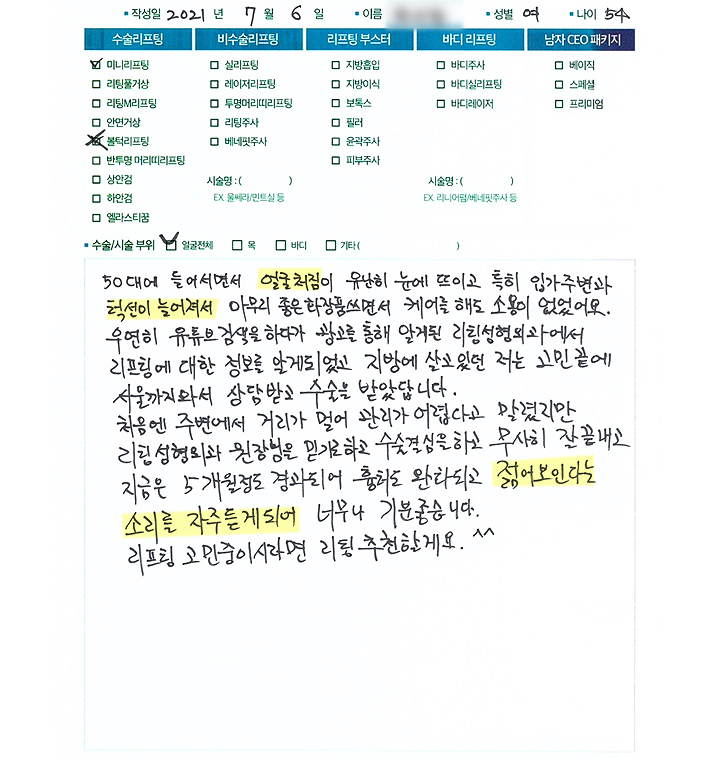 작성일 2021 년 7 월 6 일 이름 성별 여 나이 54
수술리프팅 비수술리프팅 리프팅 부스터 바디 리프팅 남자 CEO 패키지
미니리프팅 실리프팅 지방흡입 바디주사 베이직
리팅풀거상 레이저리프팅 지방이식 바디실리프팅 스페셜
리팅M리프팅 투명머리띠리프팅 보톡스 바디레이저 프리미엄
안면거상 리팅주사 필러
볼턱리프팅 베네핏주사 윤곽주사
반투명 머리띠리프팅 피부주사
상안검 시술명 : ( ) 시술명 : ( )
하안검 EX. 울쎄라/민트실 등 EX. 리니어펌/베네핏주사 등
엘라스티꿈
수술/시술 부위 얼굴전체 목 바디 기타 ( )
50대에 들어서면서 얼굴처짐이 유난히 눈에 뜨이고 특히 입가주변과
턱선이 늘어져서 아무리 좋은화장품쓰면서 케어를 해도 소용이 없었어요.
우연히 유튜브검색을하다가 광고를 통해 알게된 리팅성형외과에서
리프팅에 대한 정보를 알게되었고 지방에 살고있던 저는 고민끝에
서울까지와서 상담받고 수술을 받았답니다.
처음엔 주변에서 거리가 멀어 관리가 어렵다고 말렸지만
리팅성형외과 원장님을 믿기로하고 수술결심을하고 무사히 잘끝내고
지금은 5개월정도 경과되어 흉터도 완화되고 젊어보인다는
소리를 자주듣게되어 너무나 기분좋습니다.
리프팅 고민중이시라면 리팅 추천할게요. ^^